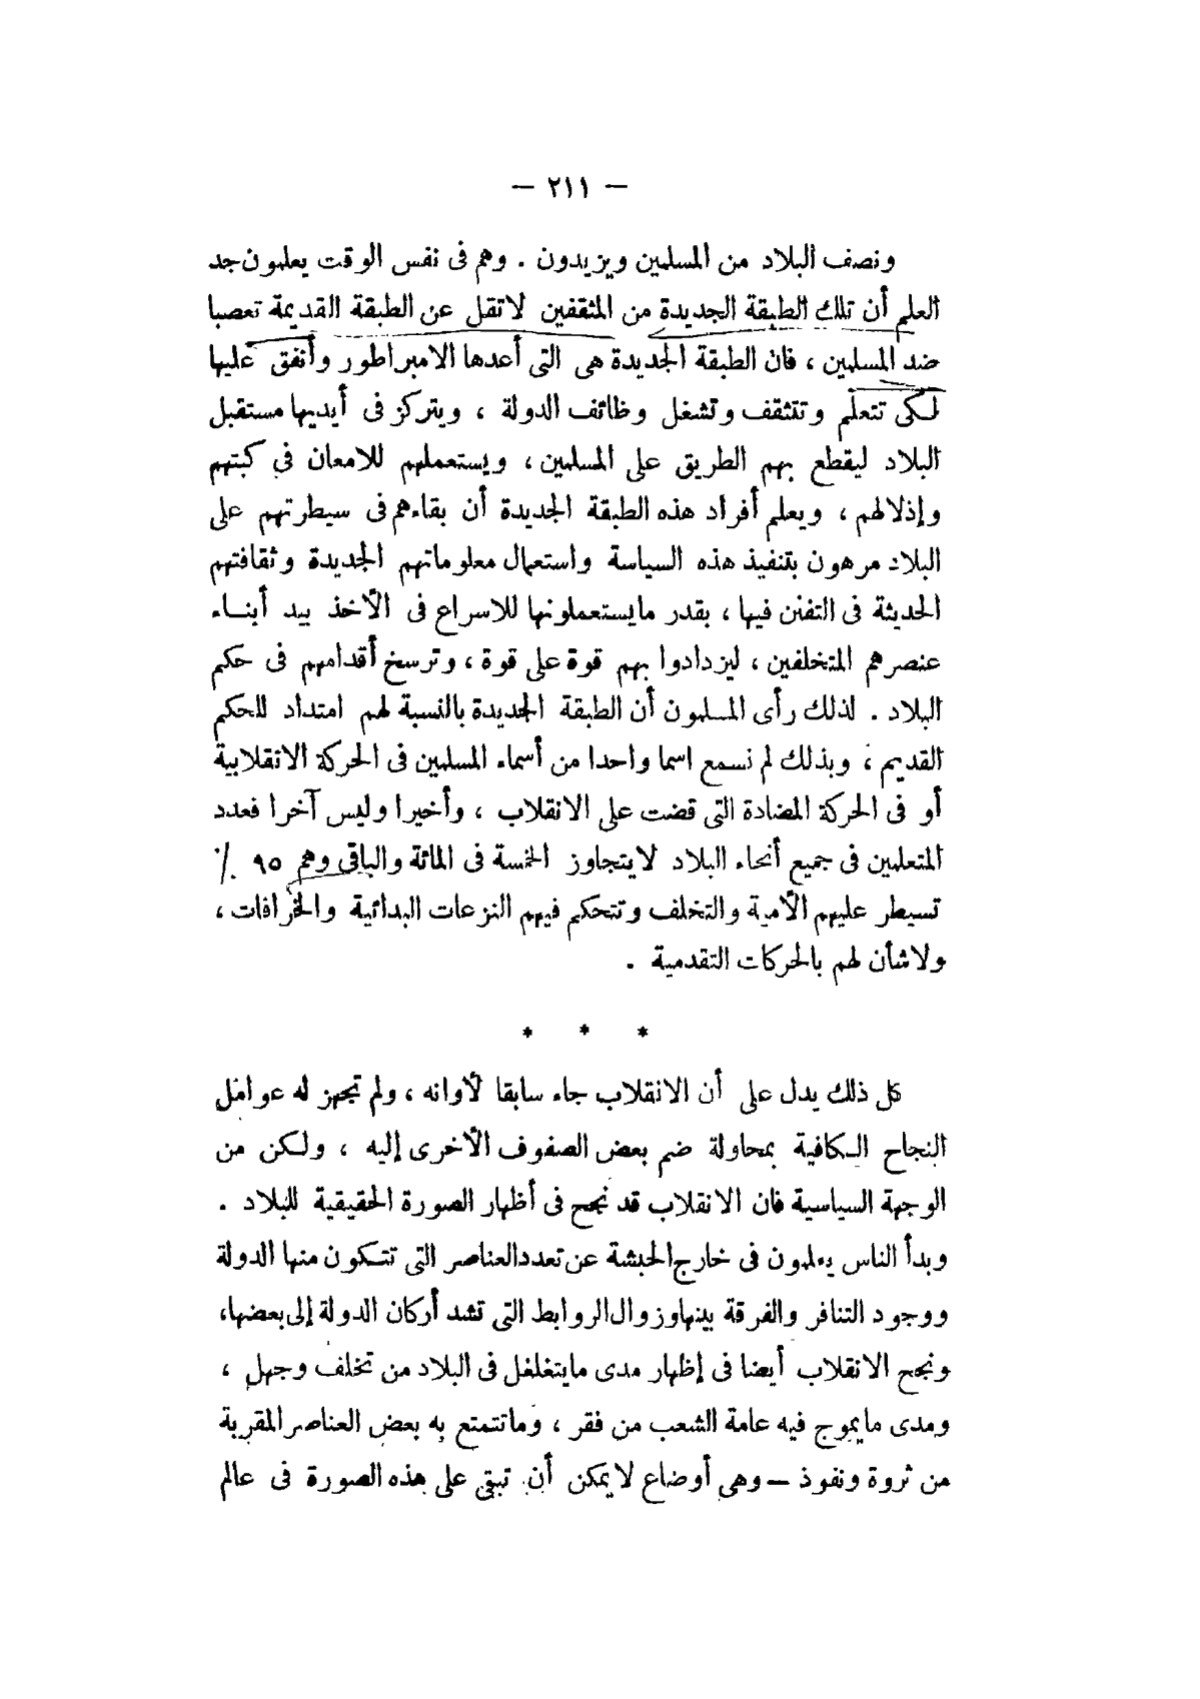 — ٢١١ —
ونصف البلاد من المسلمين ويزيدون . وهم فى نفس الوقت يعلمون جد
العلم أن تلك الطبقة الجديدة من المثقفين لاتقل عن الطبقة القديمة تعصبا
ضد المسلمين ، فان الطبقة الجديدة هى التى أعدها الامبراطور وأنفق عليها
لكى تتعلم وتتثقف وتشغل وظائف الدولة ، ويتركز فى أيديها مستقبل
البلاد ليقطع بهم الطريق على المسلمين ، ويستعملهم للامعان فى كبتهم
وإذلالهم ، ويعلم أفراد هذه الطبقة الجديدة أن بقاءهم فى سيطرتهم على
البلاد مرهون بتنفيذ هذه السياسة واستعمال معلوماتهم الجديدة وثقافتهم
الحديثة فى التفنن فيها ، بقدر مايستعملونها للاسراع فى الأخذ بيد أبنـاء
عنصرهم المتخلفين ، ليزدادوا بهم قوة على قوة ، وترسخ أقدامهم فى حكم
البلاد . لذلك رأى المسلمون أن الطبقة الجديدة بالنسبة لهم امتداد للحكم
القديم ، وبذلك لم نسمع اسما واحدا من أسماء المسلمين فى الحركة الانقلابية
أو فى الحركة المضادة التى قضت على الانقلاب ، وأخيرا وليس آخرا فعدد
المتعلمين فى جميع أنحاء البلاد لايتجاوز الخمسة فى المائة والباقى وهم ٩٥ ٪
تسيطر عليهم الأمية والتخلف وتتحكم فيهم النزعات البدائية والخرافات ،
ولاشأن لهم بالحركات التقدمية .
* * *
كل ذلك يدل على أن الانقلاب جاء سابقا لأوانه ، ولم تجهز له عوامل
النجاح الـكافية بمحاولة ضم بعض الصفوف الأخرى إليه ، ولـكن من
الوجهة السياسية فان الانقلاب قد نجح فى أظهار الصورة الحقيقية للبلاد .
وبدأ الناس يعلمون فى خارج الحبشة عن تعدد العناصر التى تتـكون منها الدولة
ووجود التنافر والفرقة بينها وزوال الروابط التى تشد أركان الدولة إلى بعضها ،
ونجح الانقلاب أيضا فى إظهار مدى مايتغلغل فى البلاد من تخلف وجهل ،
ومدى مايموج فيه عامة الشعب من فقر ، وماتتمتع به بعض العناصر المقربة
من ثروة ونفوذ — وهى أوضاع لايمكن أن تبقى على هذه الصورة فى عالم